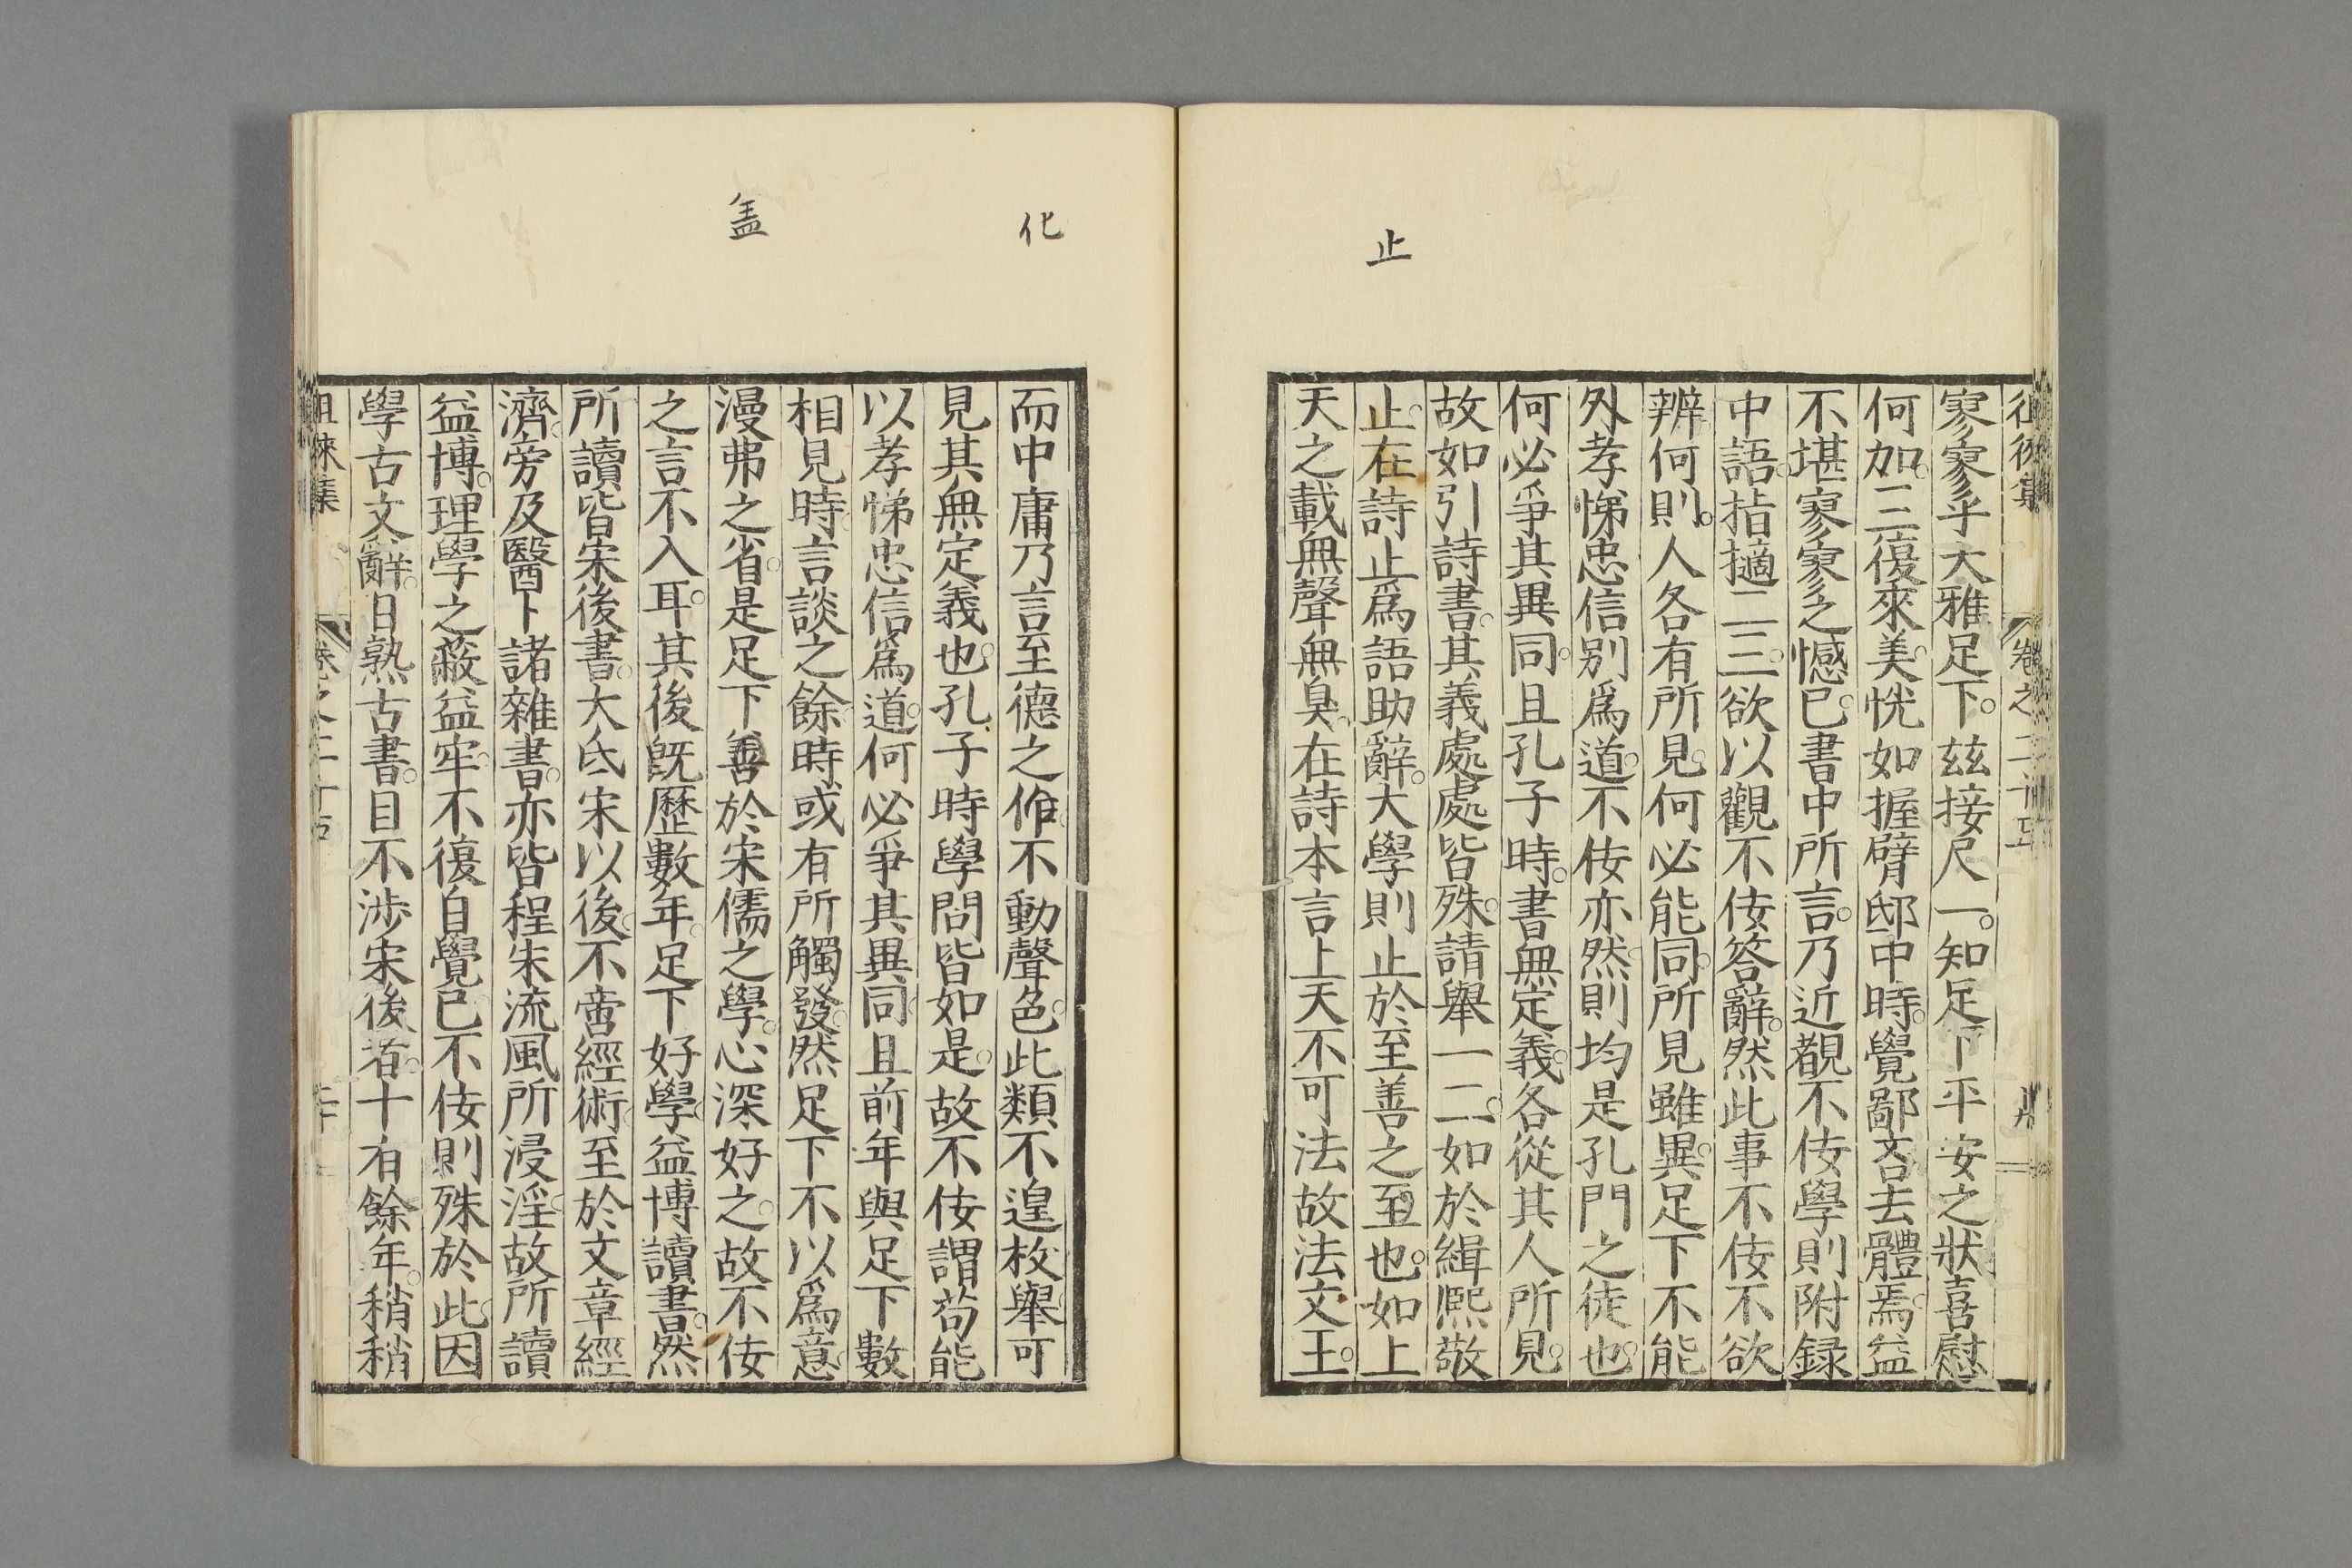 止
寥寥乎大雅足下。玆接尺一。知足下平安之狀喜慰
何加。三復來美。恍如握臂邸中時。覺鄙吝去體焉。益
不堪寥寥之憾已。書中所言。乃近覩不佞學則附録
中語。指摘二三。欲以觀不佞答辭。然此事不佞不欲
辨何則。人各有所見。何必能同。所見雖異。足下不能
外孝悌忠信別爲道。不佞亦然。則均是孔門之徒也。
何必爭其異同。且孔子時。書無定義。各從其人所見。
故如引詩書。其義處處皆殊。請舉一二。如於緝熈敬
止。在詩止爲語助辭。大學則止於至善之至也。如上
天之載無聲無臭。在詩本言上天不可法故法文王。
化
盖
而中庸乃言至德之作不動聲色。此類不遑枚舉。可
見其無定義也。孔子時學問皆如是。故不佞謂苟能
以孝悌忠信爲道。何必爭其異同。且前年與足下數
相見時。言談之餘。時或有所觸發。然足下不以爲意。
漫弗之省。是足下善於宋儒之學。心深好之。故不佞
之言不入耳。其後既歷數年。足下好學。益博讀書。然
所讀皆宋後書。大氐宋以後。不啻經術。至於文章經
濟。旁及醫卜諸雜書。亦皆程朱流風所浸淫。故所讀
益博。理學之蔽益牢。不復自覺已。不佞則殊於此。因
學古文辭。日熟古書。目不涉宋後者。十有餘年。稍稍